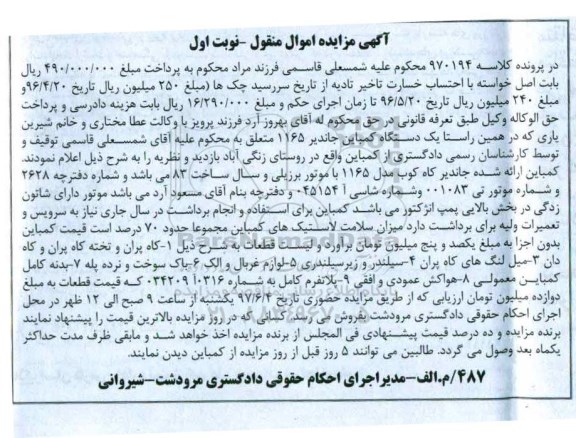 آگهی مزایده اموال منقول -نوبت اول
در پرونده کلاسه ۹۷۰۱۹۴ محکوم علیه شمسعلی قاسمی فرزند مراد محکوم به پرداخت مبلغ ۴۹۰/۰۰۰/۰۰۰ ریال
بابت اصل خواسته با احتساب خسارت تاخیر تادیه از تاریخ سررسید چک ها (مبلغ ۲۵۰ میلیون ریال تاریخ ۹۶/۴/۲۰و
مبلغ ۲۴۰ میلیون ریال تاریخ ۹۶/۵/۲۰ تا زمان اجرای حکم و مبلغ ۱۶/۲۹۰/۰۰۰ ریال بابت هزینه دادرسی و پرداخت
حق الوکاله وکیل طبق تعرفه قانونی در حق محکوم له آقای بهروز آرد فرزند پرویز با وکالت عطا مختاری و خانم شیرین
یاری که در همین راستا یک دستگاه کمباین جاندیر ۱۱۶۵ متعلق به محکوم علیه آقای شمسعلی قاسمی توقیف و
توسط کارشناسان رسمی دادگستری از کمباین واقع در روستای زنگی آباد بازدید و نظریه را به شرح ذیل اعلام نمودند.
کمباین ارائه شده جاندیر کاه کوب مدل ۱۱۶۵ با موتور برزیلی و سال ساخت ۸۳ می باشد و شماره دفترچه ۲۶۲۸
و شماره موتور تی ۰۰۱۰۸۳ وشماره شاسی آ ۰۴۵۱۵۴ و دفترچه بنام آقای مسعود آرد می باشد موتور دارای شاتون
زدگی در بخش بالایی پمپ انژکتور می باشد کمباین برای استفاده و انجام برداشت در سال جاری نیاز به سرویس و
تعمیرات ولیه برای برداشت دارد میزان سلامت لاستیک های کمباین مجموعا حدود ۷۰ درصد است قیمت کمباین
بدون اجزا به مبلغ یکصد و پنج میلیون تومان برآورد ولیست قطعات به شرح ذیل ۱-کاه پران و تخته کاه پران و کاه
دان ۳-میل لنگ های کاه پران ۴-سیلندر و زیرسیلندری ۵-لوازم غربال و الک ۶-باک سوخت و نرده پله ۷-بدنه کامل
کمباین معمولی ۸-هواکش عمودی و افقی ۹-پلاتفرم کامل به شماره ۰۳۱۶آ ۰۳۴۲۰۹ که قیمت قطعات به مبلغ
دوازده میلیون تومان ارزیابی که از طریق مزایده حضوری تاریخ ۹۷/۶/۴ یکشنبه از ساعت ۹ صبح الی ۱۲ ظهر در محل
اجرای احکام حقوقی دادگستری مرودشت بفروش می رسد. کسانی که در روز مزایده بالاترین قیمت را پیشنهاد نمایند
برنده مزایده و ده درصد قیمت پیشنهادی فی المجلس از برنده مزایده اخذ خواهد شد و مابقی ظرف مدت حداکثر
یکماه بعد وصول می گردد. طالبین می توانند ۵ روز قبل از روز مزایده از کمباین دیدن نمایند.
۴۸۷/م.الف-مدیراجرای احکام حقوقی دادگستری مرودشت-شیروانی